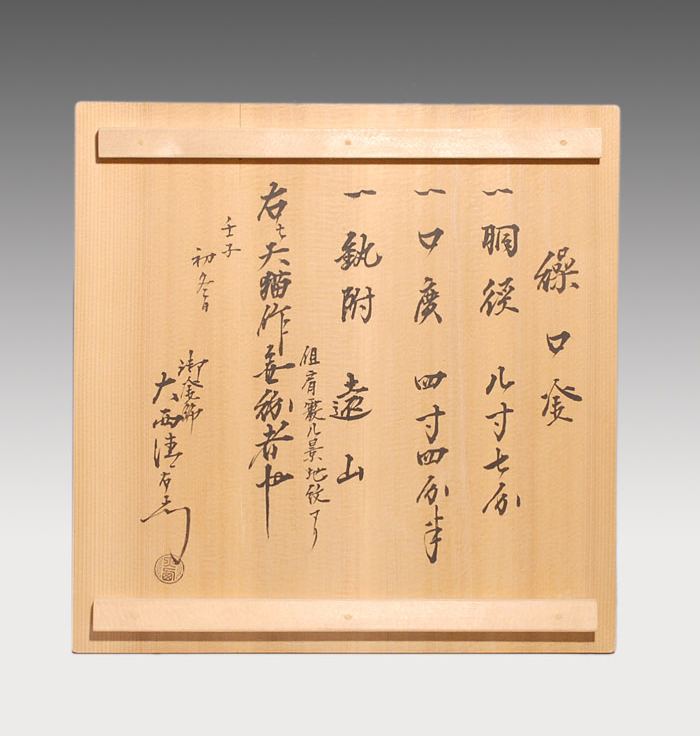 繰口釜
一 胴径 八寸七分
一 口廣 四寸四分半
一 釻附 遠山
但肩霰八景地紋アリ
右七大猫作無紛者也
壬子
初冬日
御釜師
大西清右衛門